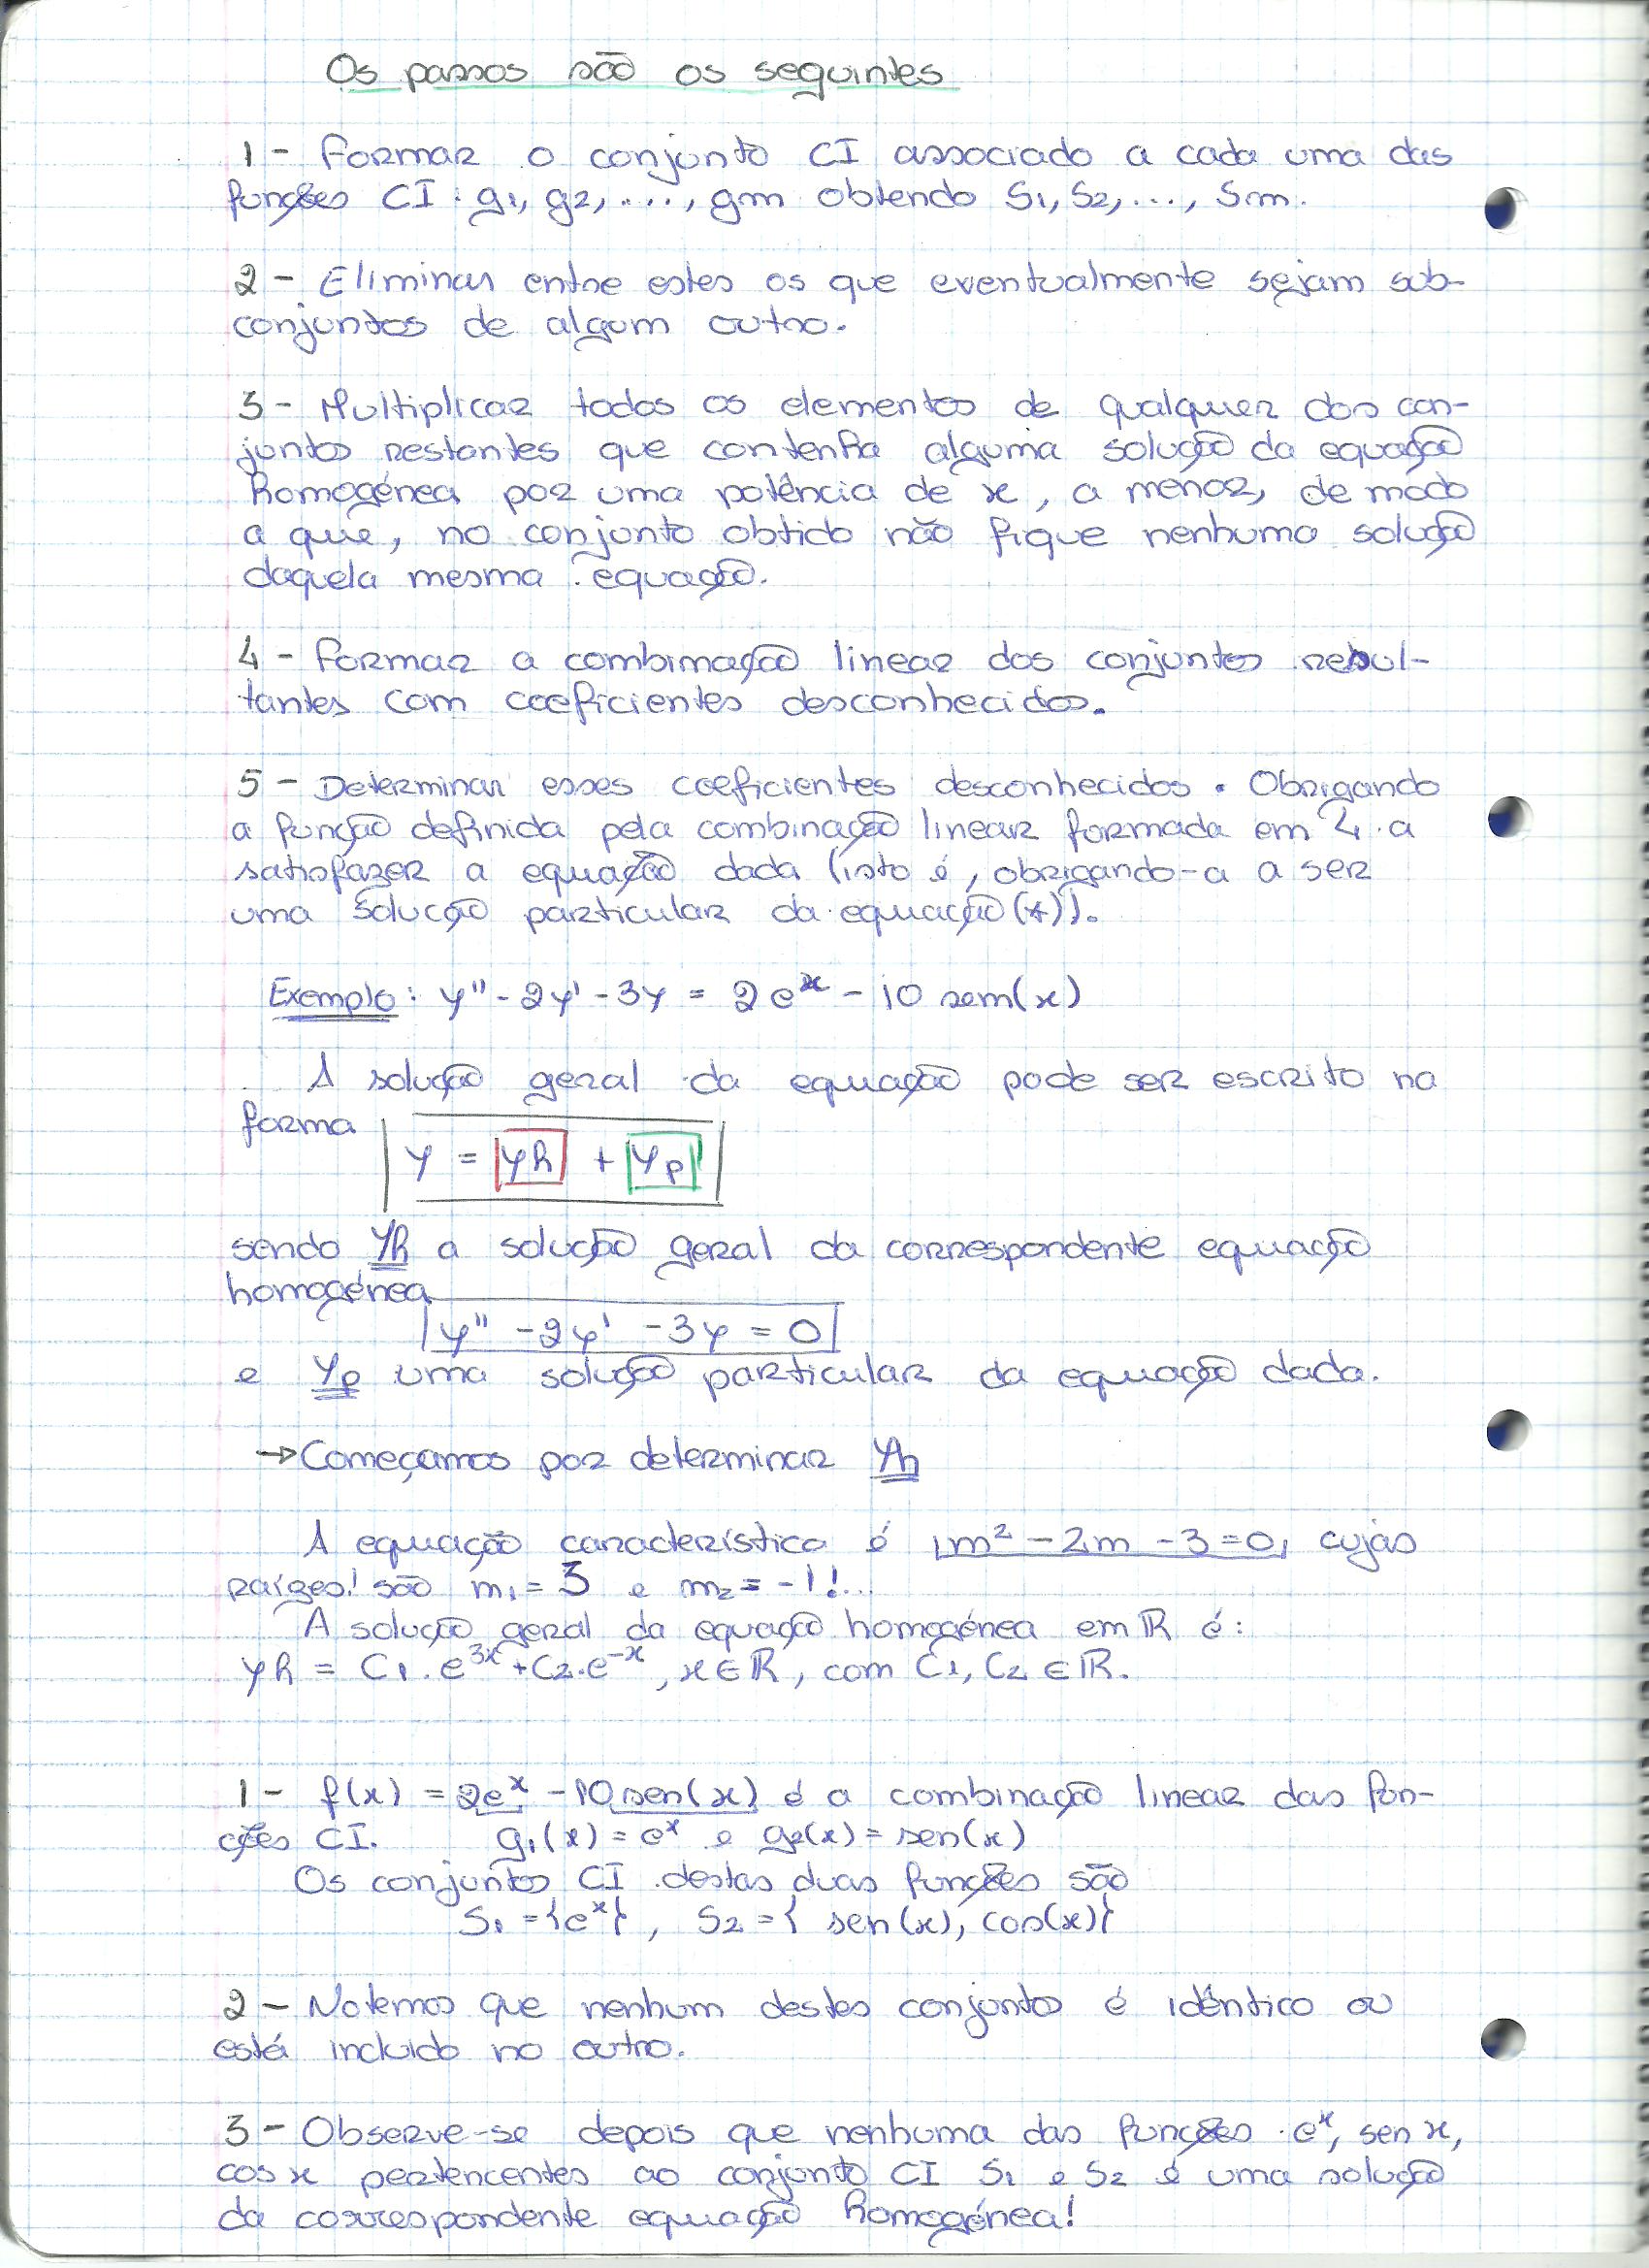 Os passos são os seguintes
1 - Formar o conjunto CI associado a cada uma das
funções CI: g1, g2, ..., gm obtendo S1, S2, ..., Sm.
2 - Eliminar entre estes os que eventualmente sejam sub-
conjuntos de algum outro.
3 - Multiplicar todos os elementos de qualquer dos con-
juntos restantes que contenha alguma solução da equação
homogénea por uma potência de x, a menor, de modo
a que, no conjunto obtido não fique nenhuma solução
daquela mesma equação.
4 - Formar a combinação linear dos conjuntos resul-
tantes com coeficientes desconhecidos.
5 - Determinar esses coeficientes desconhecidos. Obrigando
a função definida pela combinação linear formada em 4. a
satisfazer a equação dada (isto é, obrigando-a a ser
uma solução particular da equação (*)).
Exemplo: y'' - 2y' - 3y = 2e^x - 10 sem(x)
A solução geral da equação pode ser escrito na
forma
y = yh + yp
sendo yh a solução geral da correspondente equação
homogénea
y'' - 2y' - 3y = 0
e yp uma solução particular da equação dada.
→ Começamos por determinar yh
A equação característica é m² - 2m - 3 = 0, cujas
raízes! são m1 = 3 e m2 = -1!...
A solução geral da equação homogénea em ℝ é:
yh = C1.e^3x + C2.e^-x, x∈ℝ, com C1, C2 ∈ℝ.
1 - f(x) = 2e^x - 10 sen(x) é a combinação linear das fun-
ções CI. g1(x) = e^x e g2(x) = sen(x)
Os conjuntos CI destas duas funções são
S1 = {e^x}, S2 = { sen(x), cos(x)}
2 - Notemos que nenhum destes conjunto é idêntico ou
está incluido no outro.
3 - Observe-se depois que nenhuma das funções e^x, sen x,
cos x pertencentes ao conjunto CI S1 e S2 é uma solução
da correspondente equação homogénea!